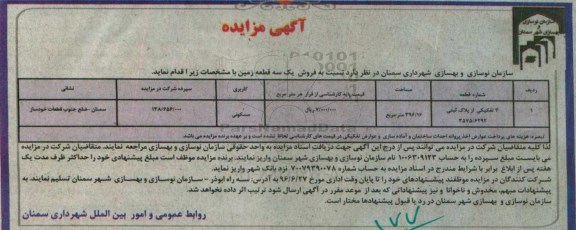 آگهی مزایده
سازمان نوسازی و
بهسازی شهر سمنان
سازمان نوسازی و بهسازی شهرداری سمنان در نظر دارد نسبت به فروش یک سه قطعه زمین با مشخصات زیر اقدام نماید.
ردیف شماره قطعه مساحت قیمت پایه کارشناسی از قرار هر متر مربع کاربری سپرده شرکت در مزایده نشانی
۱ ۷ تفکیکی از پلاک ثبتی ریال مسکونی سمنان - ضلع جنوب قطعات خودساز
متر مربع
تبصره: هزینه های پرداخت عوارض اخذ پروانه احداث ساختمان و آماده سازی و عوارض تفکیکی در قیمت های کارشناسی لحاظ نشده است و بر عهده برنده مزایده می باشد
لذا کلیه متقاضیان شرکت در مزایده می توانند پس از درج این آگهی جهت دریافت اسناد مزایده به واحد حقوقی سازمان نوسازی و بهسازی مراجعه نمایند. متقاضیان شرکت در مزایده
می بایست مبلغ سپرده را به حساب ۱۰۰۶۳۰۹۱۲۳ نام سازمان نوسازی و بهسازی شهر سمنان واریز نمایند. برنده مزایده موظف است مبلغ پیشنهادی خود را حداکثر ظرف مدت یک
هفته پس از ابلاغ برابر با شرایط مندرج در اسناد مزایده به حساب شماره ۷۰۰۷۹۳۹۰۰۷۸ نزد بانک شهر واریز نماید.
شرکت کنندگان در مزایده موظفند پیشنهادهای خود را تا پایان وقت اداری مورخ ۹۶/۶/۲۷ به آدرس: سه راه ابوذر - سازمان نوسازی و بهسازی شهر سمنان تسلیم نمایند. به
پیشنهادات مبهم، مخدوش و ناخوانا و نیز پیشنهاداتی که بعد از موعد مقرر در آگهی ارسال شود ترتیب اثر داده نخواهد شد.
سازمان نوسازی و بهسازی شهر سمنان در رد یا قبول پیشنهادها مختار است.
روابط عمومی و امور بین الملل شهرداری سمنان
۱۷۷